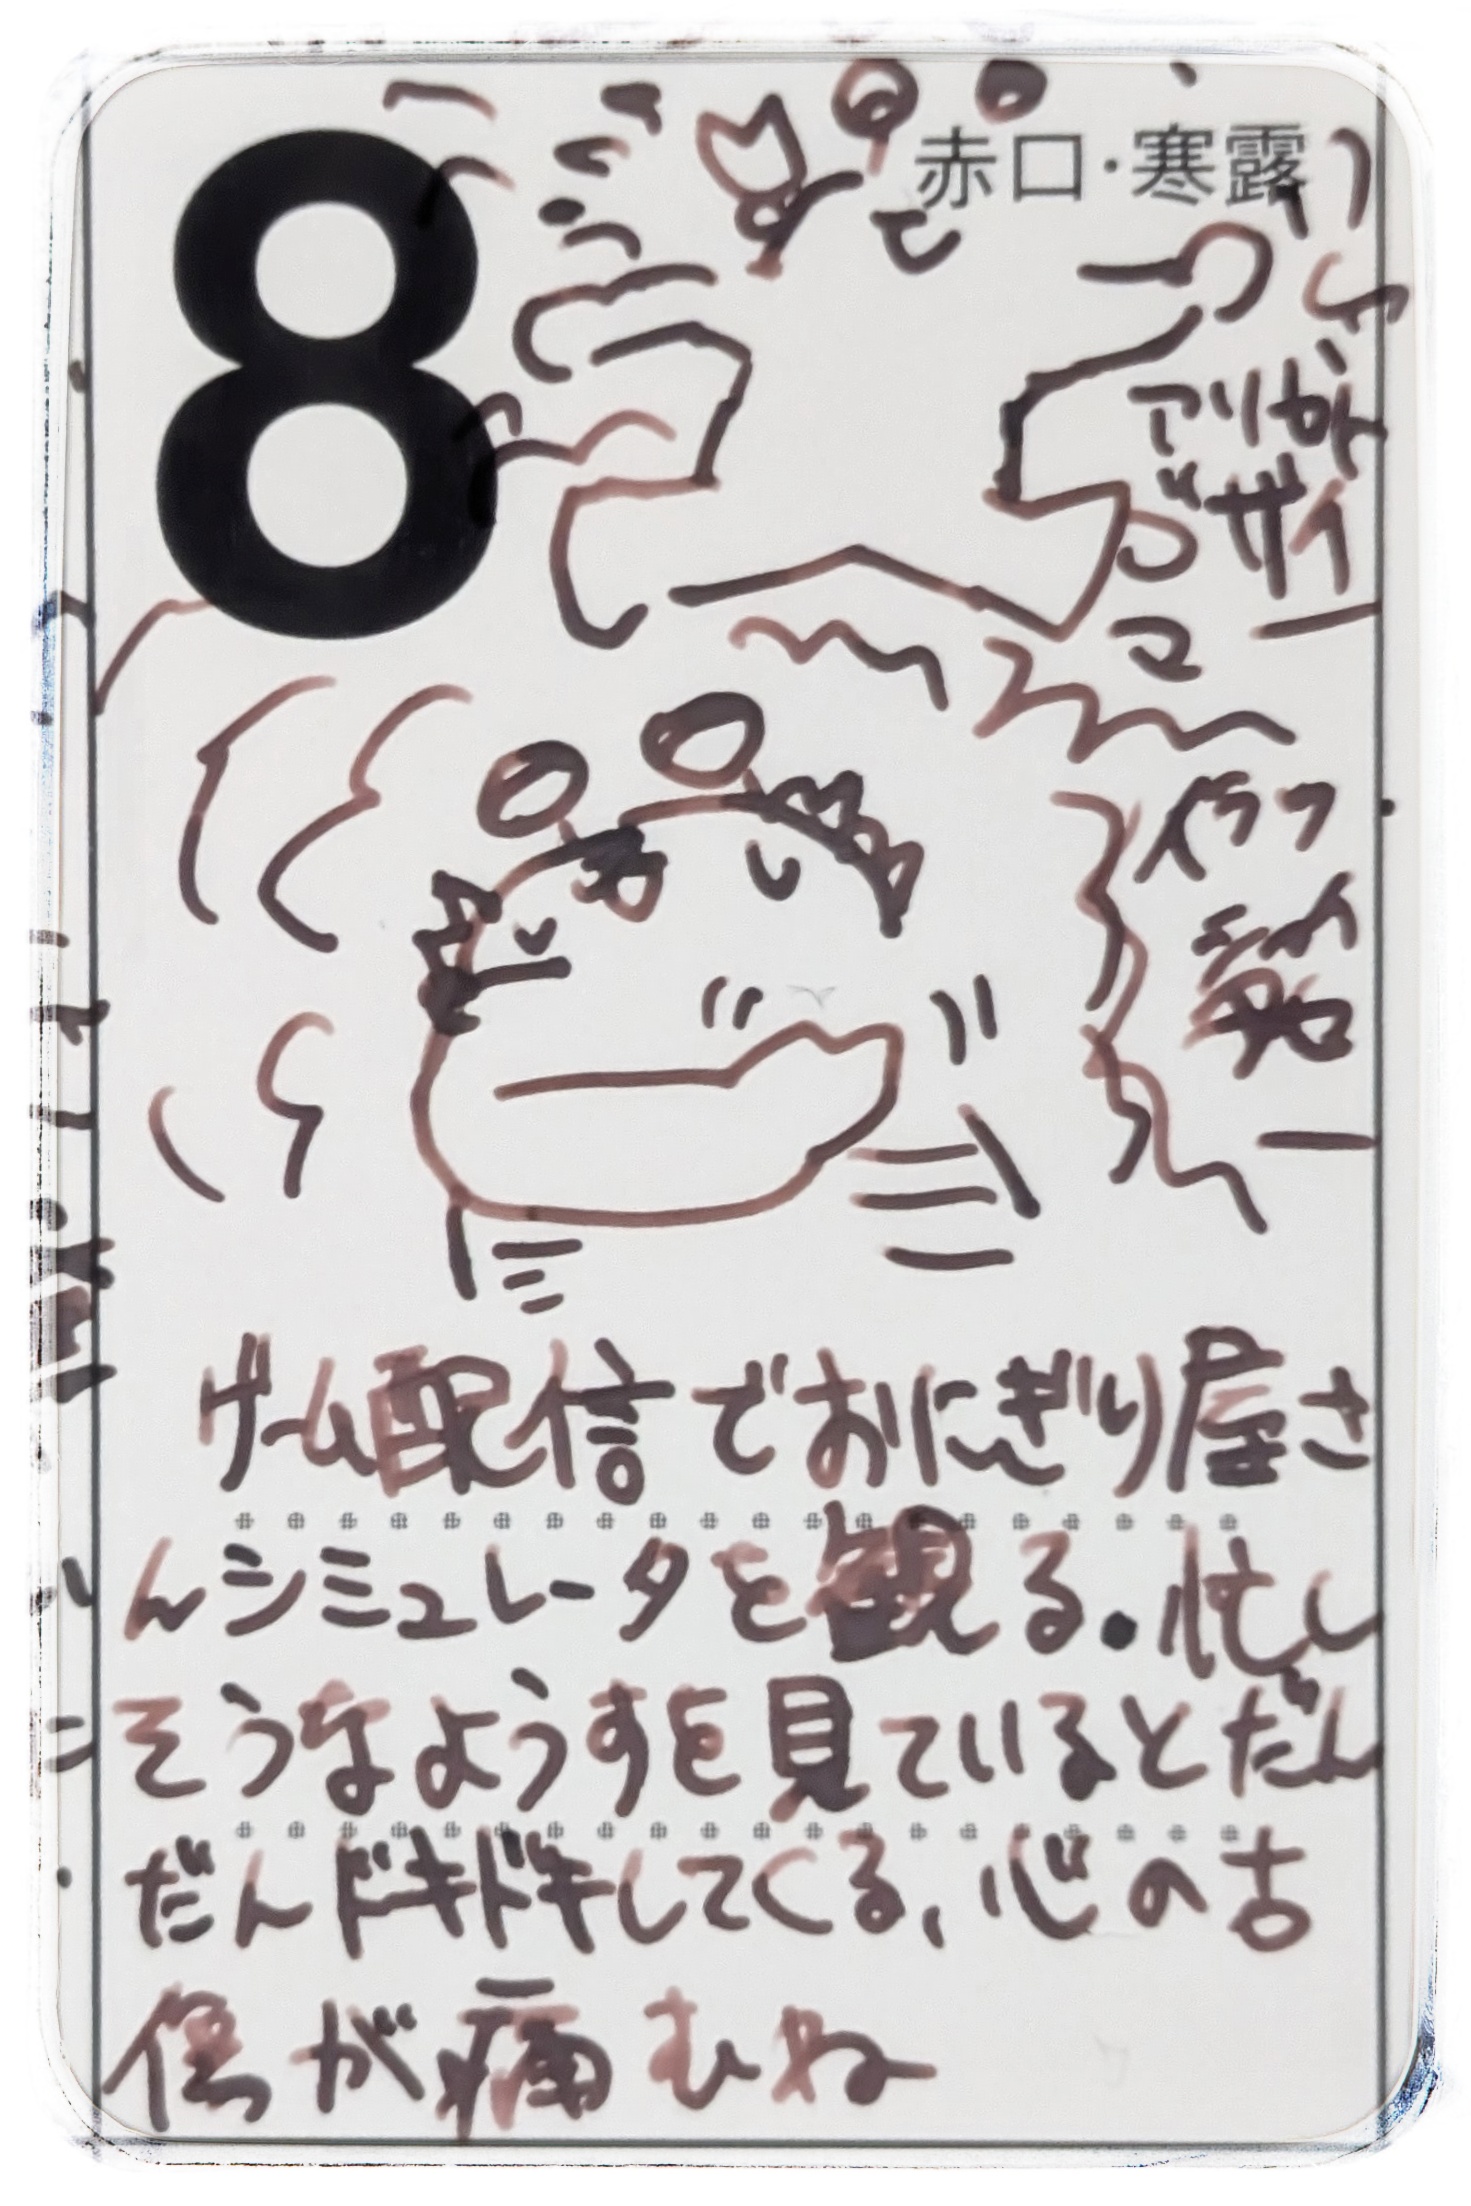 8
赤口・寒露
アリガト
ゴザイ
マ
ゲーム配信でおにぎり屋さ
んシミュレータを観る。忙し
そうなようすを見ているとだん
だんドキドキしてくる、心の古
傷が痛むね